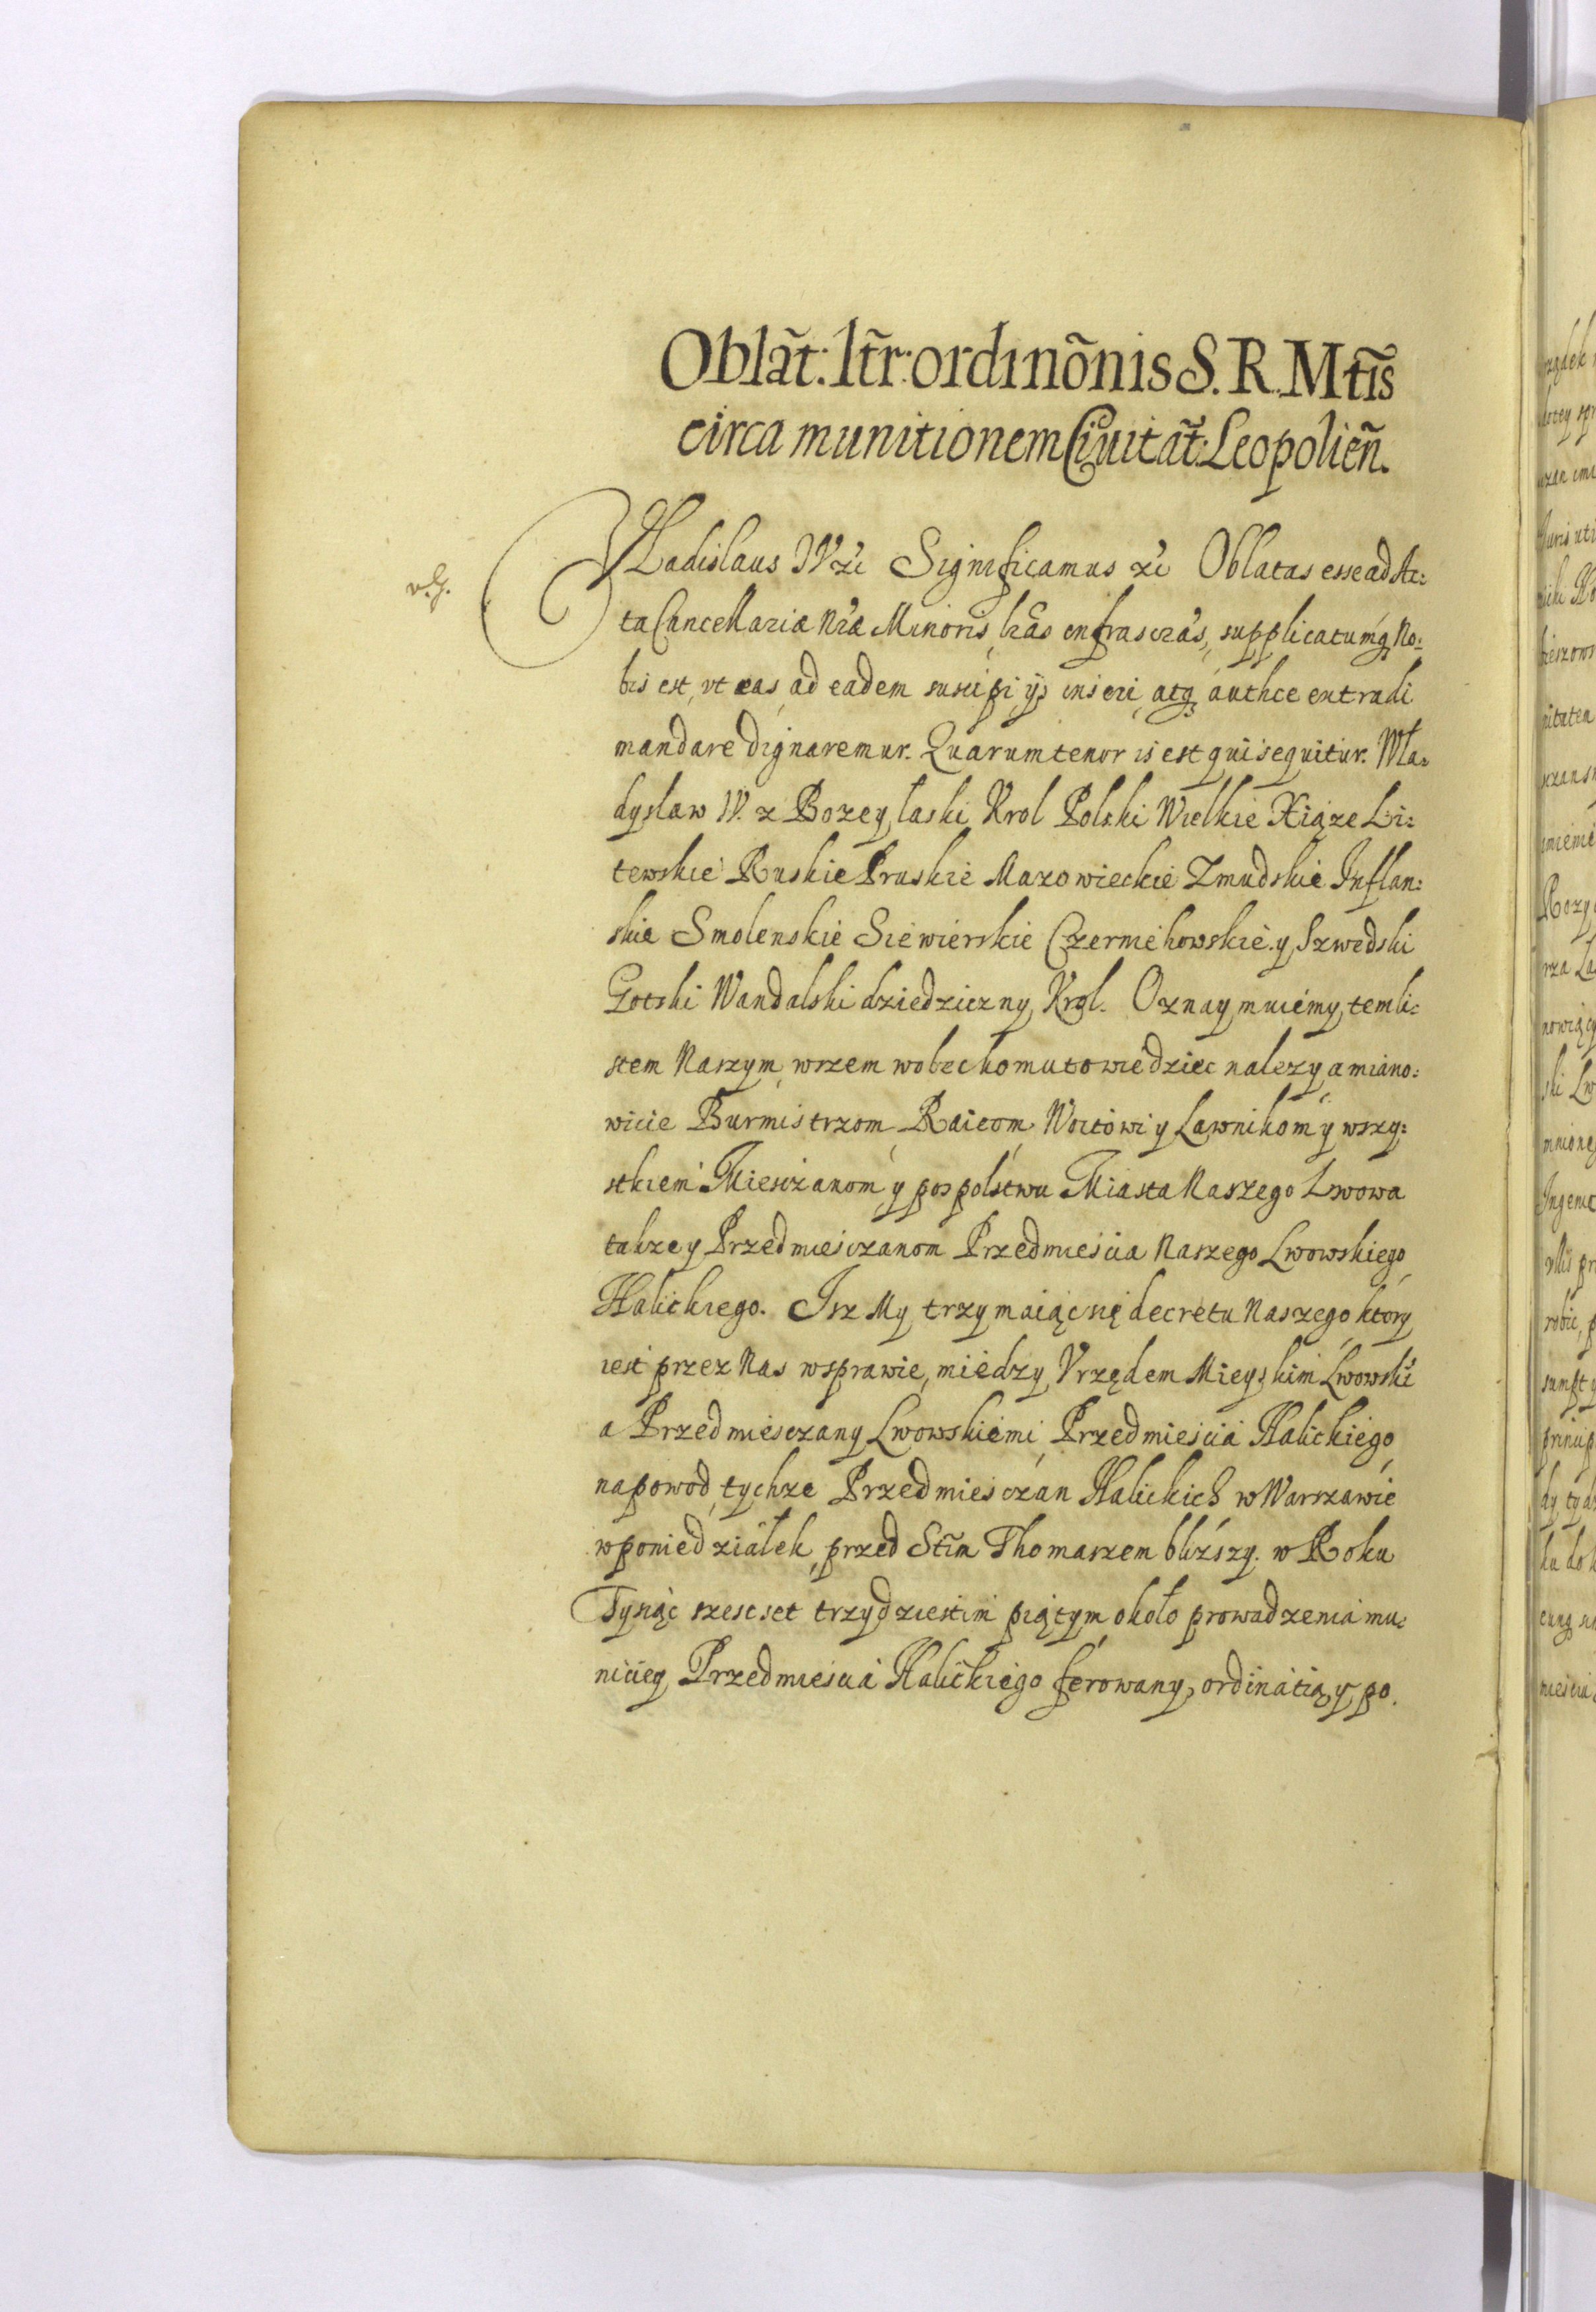 Oblat̃: ltr̃: ordinõnis S. R. Mtĩs
circa munitionem Ciuitat̃: Leopolien̄.
Vladislaus IV &c Significamus &c Oblatas esse ad Ac:
ta Cancellariæ Nræ Minoris, lrãs infrascrãs, supplicatumq; No:
bis est, vt eas, ad eadem suscipi, ijs inseri, atq; authce extradi
mandare dignaremur. Quarum tenor is est qui sequitur. Wła:
dysław IV. z Bozey łaski Krol Polski Wielkie Xiąze Li:
tewskie Ruskie Pruskie Mazowieckie Zmudskie Inflan:
skie Smolenskie Siewierskie Czerniehowskie. y Szwedski
Gotski Wandalski dziedziczny Krol. Oznaymuiemy tem li:
stem Naszym, wszem wobec komu to wiedziec nalezy a miano:
wicie Burmistrzom Raicom Woitowi y Ławnikom y wszy:
stkiem Miesczanom y pospolstwu Miasta Naszego Lwowa
takze y Przedmiesczanom Przedmiescia Naszego Lwowskiego
Halickiego. Isz My trzymaiąc się decretu Naszego ktory
iest przez Nas w sprawie, miedzy Vrzędem Mieyskim Lwowskĩ
a Przedmiesczany Lwowskiemi Przedmiescia Halickiego
na powod tychze Przedmiesczan Halickich w Warszawie
w poniedziałek przed Stĩm Thomaszem bliższy. w Roku
Tysiąc szescset trzydziestim piątym około prowadzenia mu:
niciey Przedmiescia Halickiego ferowany, ordinatią y po.